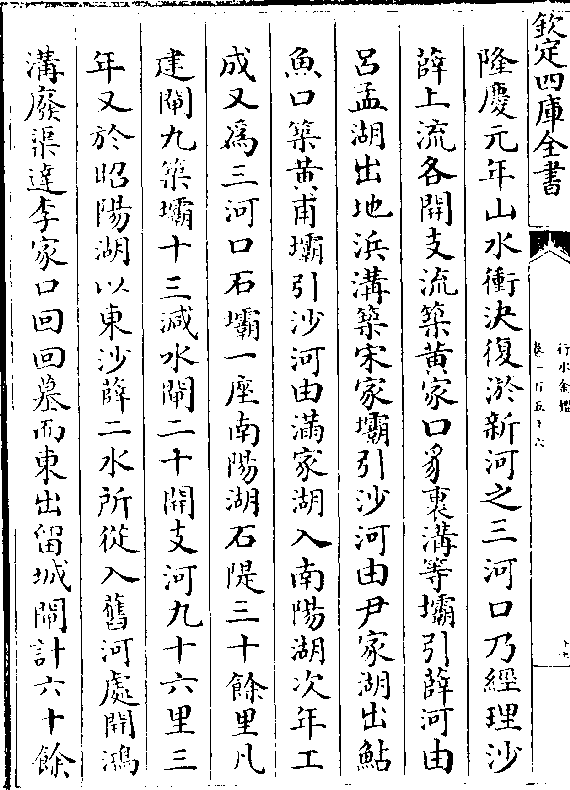 欽定四庫全書
行水金鑑
卷一百五十六
隆慶元年山水衝决復淤新河之三河口乃經理沙
薛上流各開支流築黄家口豸裏溝等壩引薛河由
呂孟湖出地浜溝築宋家壩引沙河由尹家湖出鮎
魚口築黄甫壩引沙河由滿家湖入南陽湖次年工
成又爲三河口石壩一座南陽湖石隄三十餘里凡
建閘九築壩十三減水閘二十開支河九十六里三
年又於昭陽湖以東沙薛二水所從入舊河處開鴻
溝廢渠達李家口回回墓而東出留城閘計六十餘